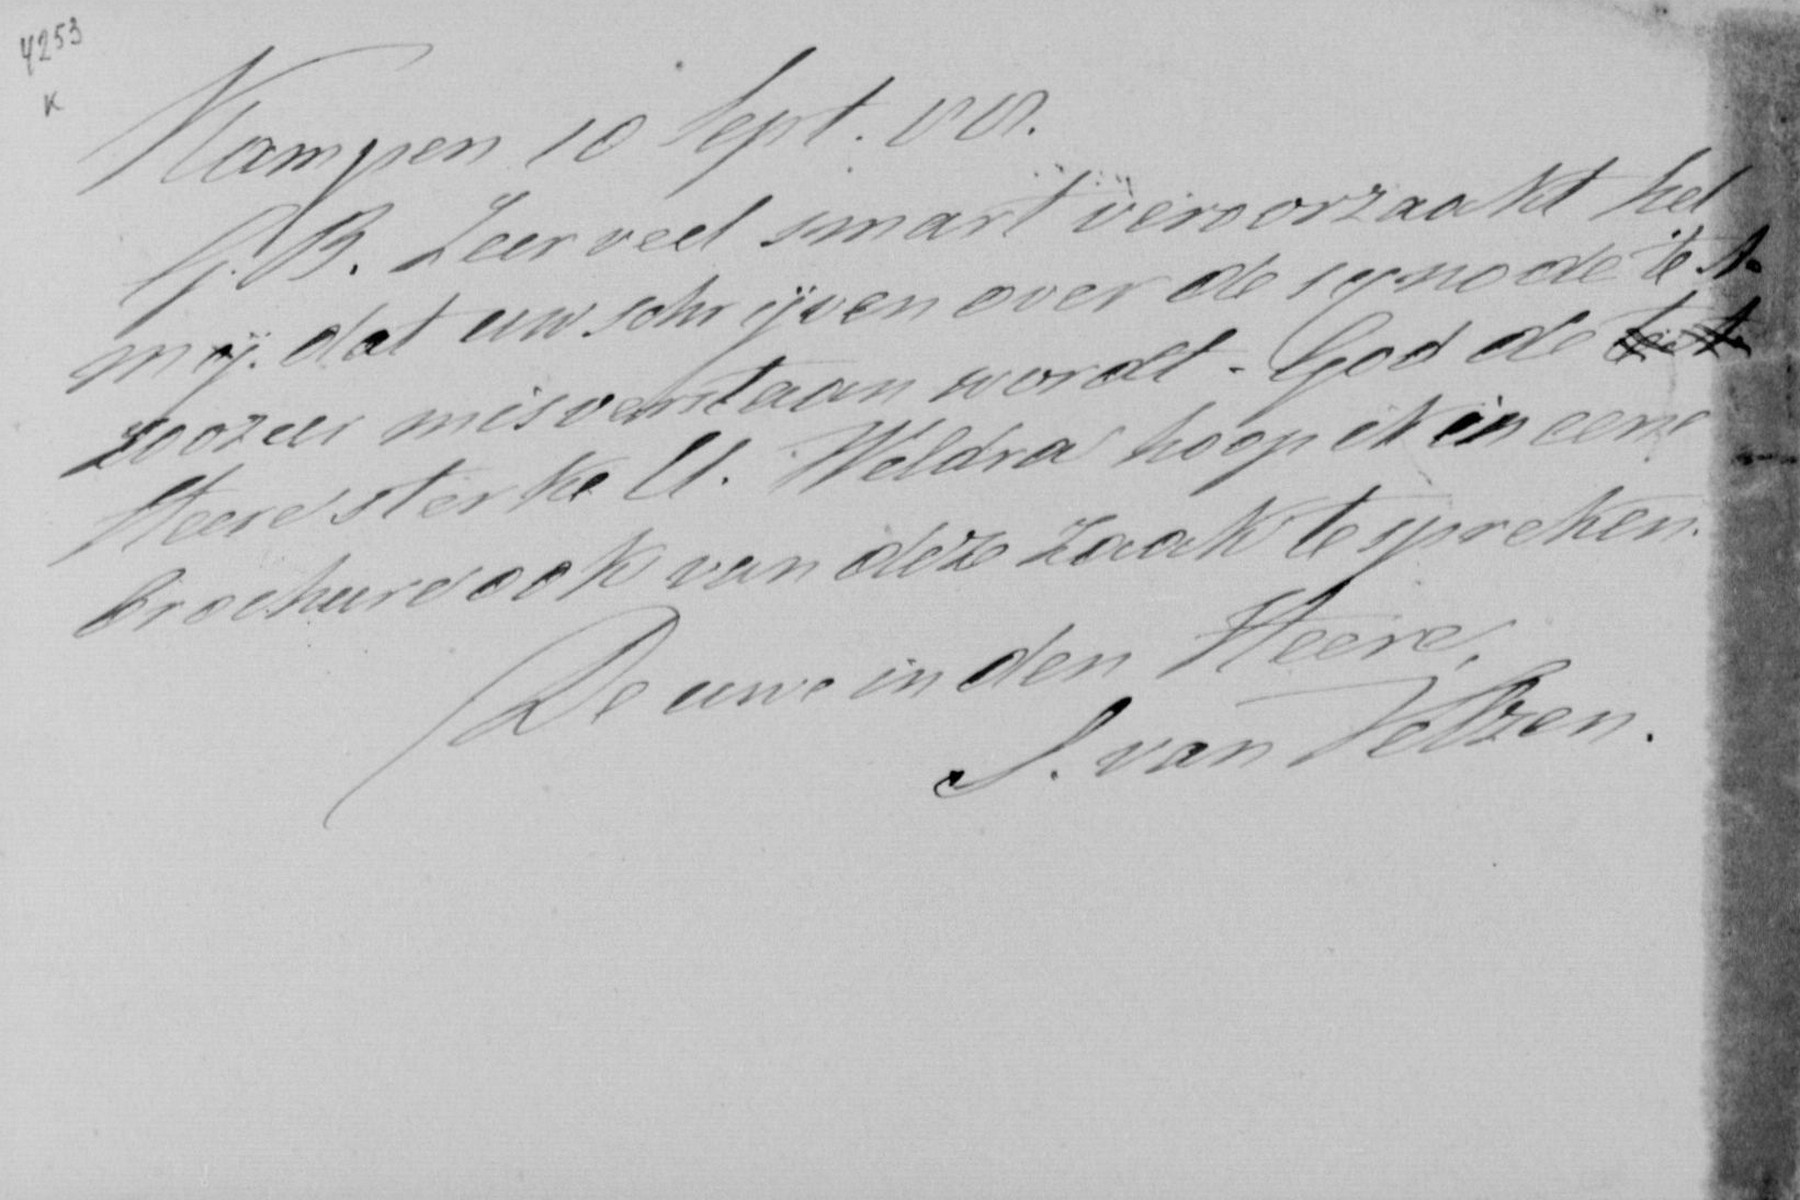 4253
K
Kampen 10 Sept. 88.
G. B. Zeer veel smart veroorzaakt het
mij. dat uw schrijven over de synode te A.
zoozeer misverstaan wordt - God de
Heere sterke U. Weldra hoop ik in eene
brochure ook van deze zaak te spreken.
De uwe in den Heere,
S. van Velzen.